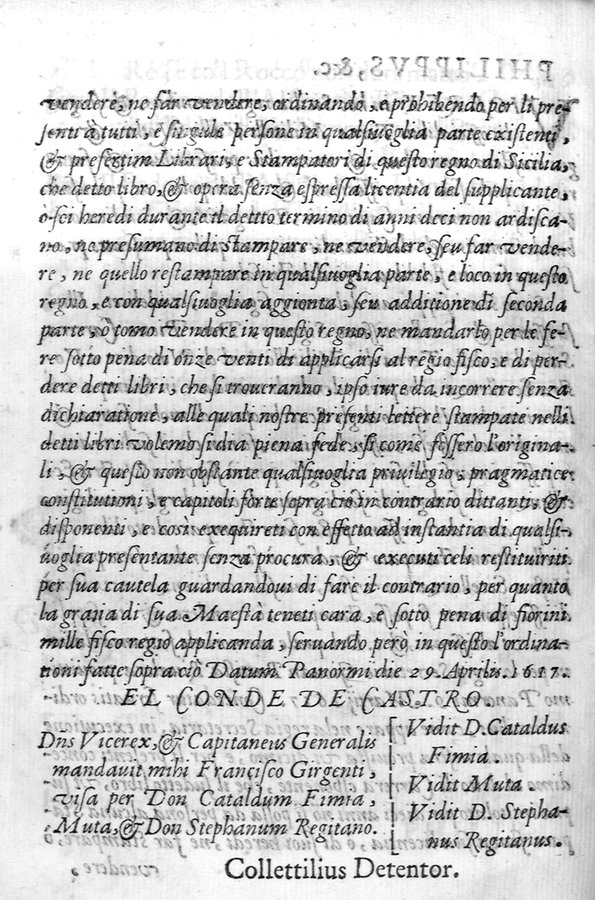 PHILIPPVS, &c.
vendere, ne far vendere, ordinando, e prohibendo per li pre-
senti à tutti, e singule persone in qualsiuoglia parte existenti,
& presertim Librari, e Stampatori di questo regno di Sicilia,
che detto libro, & opera senza espressa licentia del supplicante,
ò sei heredi durante il dettto termino di anni deci non ardisca-
no, ne presumano di Stampare, ne vendere, seu far vende-
re, ne quello restampare in qualsiuoglia parte, e loco in questo
regno, e con qualsiuoglia aggionta, seu additione di seconda
parte, ò tomo vendere in questo regno, ne mandarlo per le fe-
re sotto pena di onze venti di applicarsi al regio fisco, e di per-
dere detti libri, che si troueranno, ipso iure da incorrere senza
dichiaratione, alle quali nostre presenti lettere stampate nelli
detti libri volemo si dia piena fede, si come fossero l'origina-
li, & questo non obstante qualsiuoglia priuilegio, pragmatice
constitutioni, e capitoli forte sopra ciò in contrario dittanti, &
disponenti, e così exequireti con effetto ad instantia di qualsi-
uoglia presentante senza procura, & executi celi restituiriti
per sua cautela guardandoui di fare il contrario, per quanto
la gratia di sua Maestà teneti cara, e sotto pena di fiorini
mille fisco regio applicanda, seruando però in questo l'ordina-
tioni fatte sopra ciò Datum Panormi die 29. Aprilis. 1617.
EL CONDE DE CASTRO
Dns Vicerex, & Capitaneus Generalis
mandauit mihi Francisco Girgenti,
visa per Don Cataldum Fimia,
Muta, & Don Stephanum Regitano.
Vidit D. Cataldus
Fimia.
Vidit Muta.
Vidit D. Stepha-
nus Regitanus.
Collettilius Detentor.